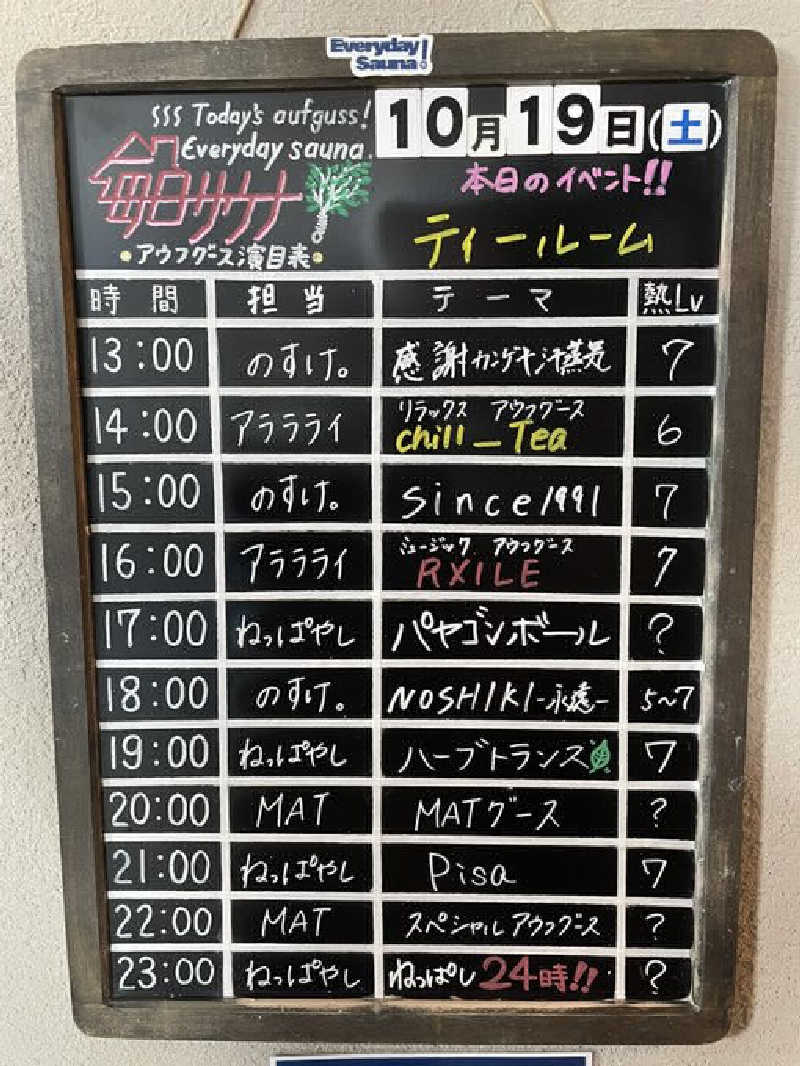 Everyday Sauna!
SSS Today's aufguss!
Everyday sauna.
毎日サウナ
アウフグース演目表
10月19日(土)
本日のイベント!!
ティールーム
時間 担当 テーマ 熱Lv
13:00 のすけ。 感謝カンゲキ汗蒸気 7
リラックス アウフグース
14:00 アラララライ chill_Tea 6
15:00 のすけ。 since1991 7
ミュージック アウフグース
16:00 アラララライ RXILE 7
17:00 ねっぱやし パヤゴンボール ?
18:00 のすけ。 NOSHIKI-永遠- 5~7
19:00 ねっぱやし ハーブトランス 7
20:00 MAT MATグース ?
21:00 ねっぱやし Pisa 7
22:00 MAT スペシャルアウフグース ?
23:00 ねっぱやし ねっぱし 24時!! ?